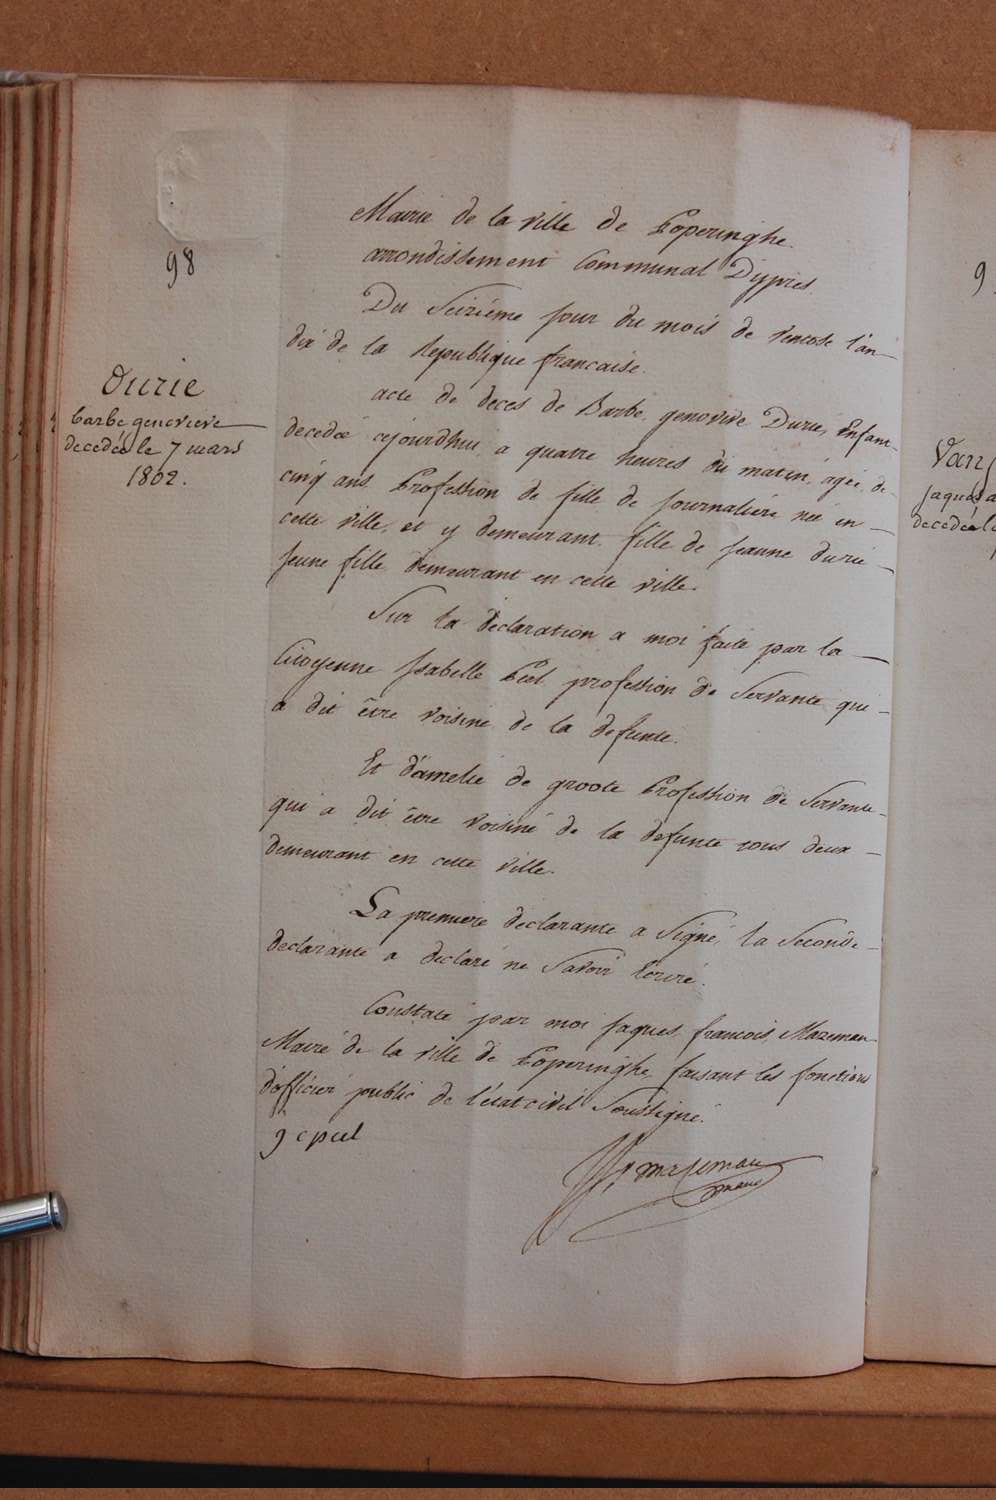 98
Durie
barbe genevieve
decedée le 7 mars
1802.
Mairie de la ville de Poperinghe
arrondissement Communal D'ypres.
Du Seizième jour du mois de ventose l'an
dix de la Republique francaise.
acte de deces de Barbe genovive Durie, Enfant
decedée cejourdhui a quatre heures du matin, agée de
cinq ans Profession de fille de journaliere née en
cette ville, et y demeurant. fille de jeanne durie
jeune fille demeurant en cette ville.
Sur la declaration a moi faite par la
Citoyenne Isabelle Peel profession de Servante qui
a dit être voisine de la defunte.
Et d'amelie de groote Profession de Servante
qui a dit être voisine de la defunte tous deux
demeurant en cette ville.
La premiere declarante a Signé, la Seconde
declarante a declaré ne Savoir Ecrire.
Constaté par moi jaques francois Mazeman
Maire de la ville de Poperinghe, faisant les fonctions
d'officier public de l'état civil Soussigné.
J c peel
JF mazeman
maire
9
Van
jaques a
decedée le